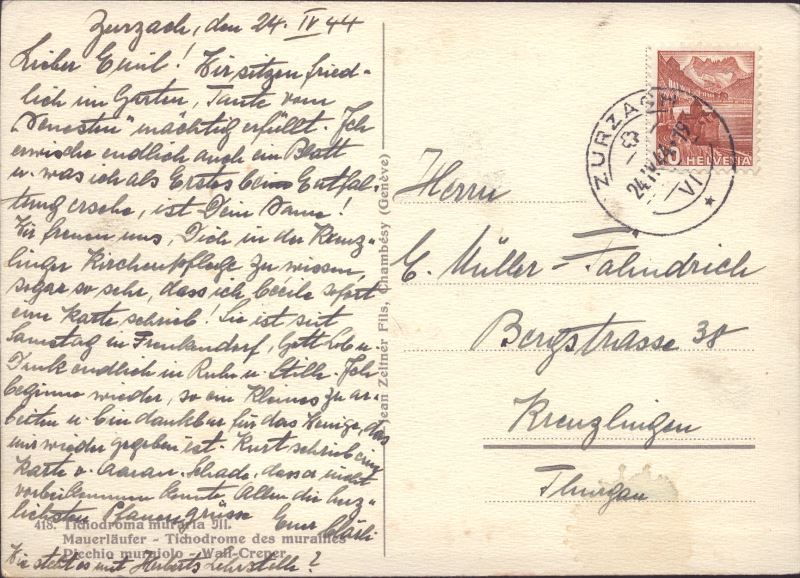 Zurzach, den 24. IV 44
Lieber Emil! Wir sitzen fried-
lich im Garten, Tante vom
"Neuesten" mächtig erfüllt. Ich
erwische endlich auch ein Blatt
u. was ich als Erstes beim Entfal-
tung ersehe, ist Dein Name!
Wir freuen uns, Dich in der Kreuz-
linger Kirchenpflege zu wissen,
sogar so sehr, dass ich Cécile sofort
eine Karte schrieb! Sie ist seit
Samstag in Frenkendorf, Gott Lob u.
Dank endlich in Ruhe u. Stille. Ich
beginne wieder, so ein Kleines zu ar-
beiten u. bin dankbar für das Wenige, das
mir wieder gegeben ist. Kurt schrieb eine
Karte v. Aarau. Schade, dass er nicht
vorbeikommen konnte. Allen die herz-
lichsten Grüsse
Euer
Wie steht es mit Herberts Lehrstelle?
418. Tichodroma muraria Ill.
Mauerläufer - Tichodrome des murailles
Picchio murajolo - Wall-Creper
Jean Zeltner Fils, Chambésy (Genève)
ZURZACH
24.IV.44.-18
VI
10 HELVETIA
Herrn
E. Müller-Fahndrich
Bergstrasse 38
Kreuzlingen
Thurgau